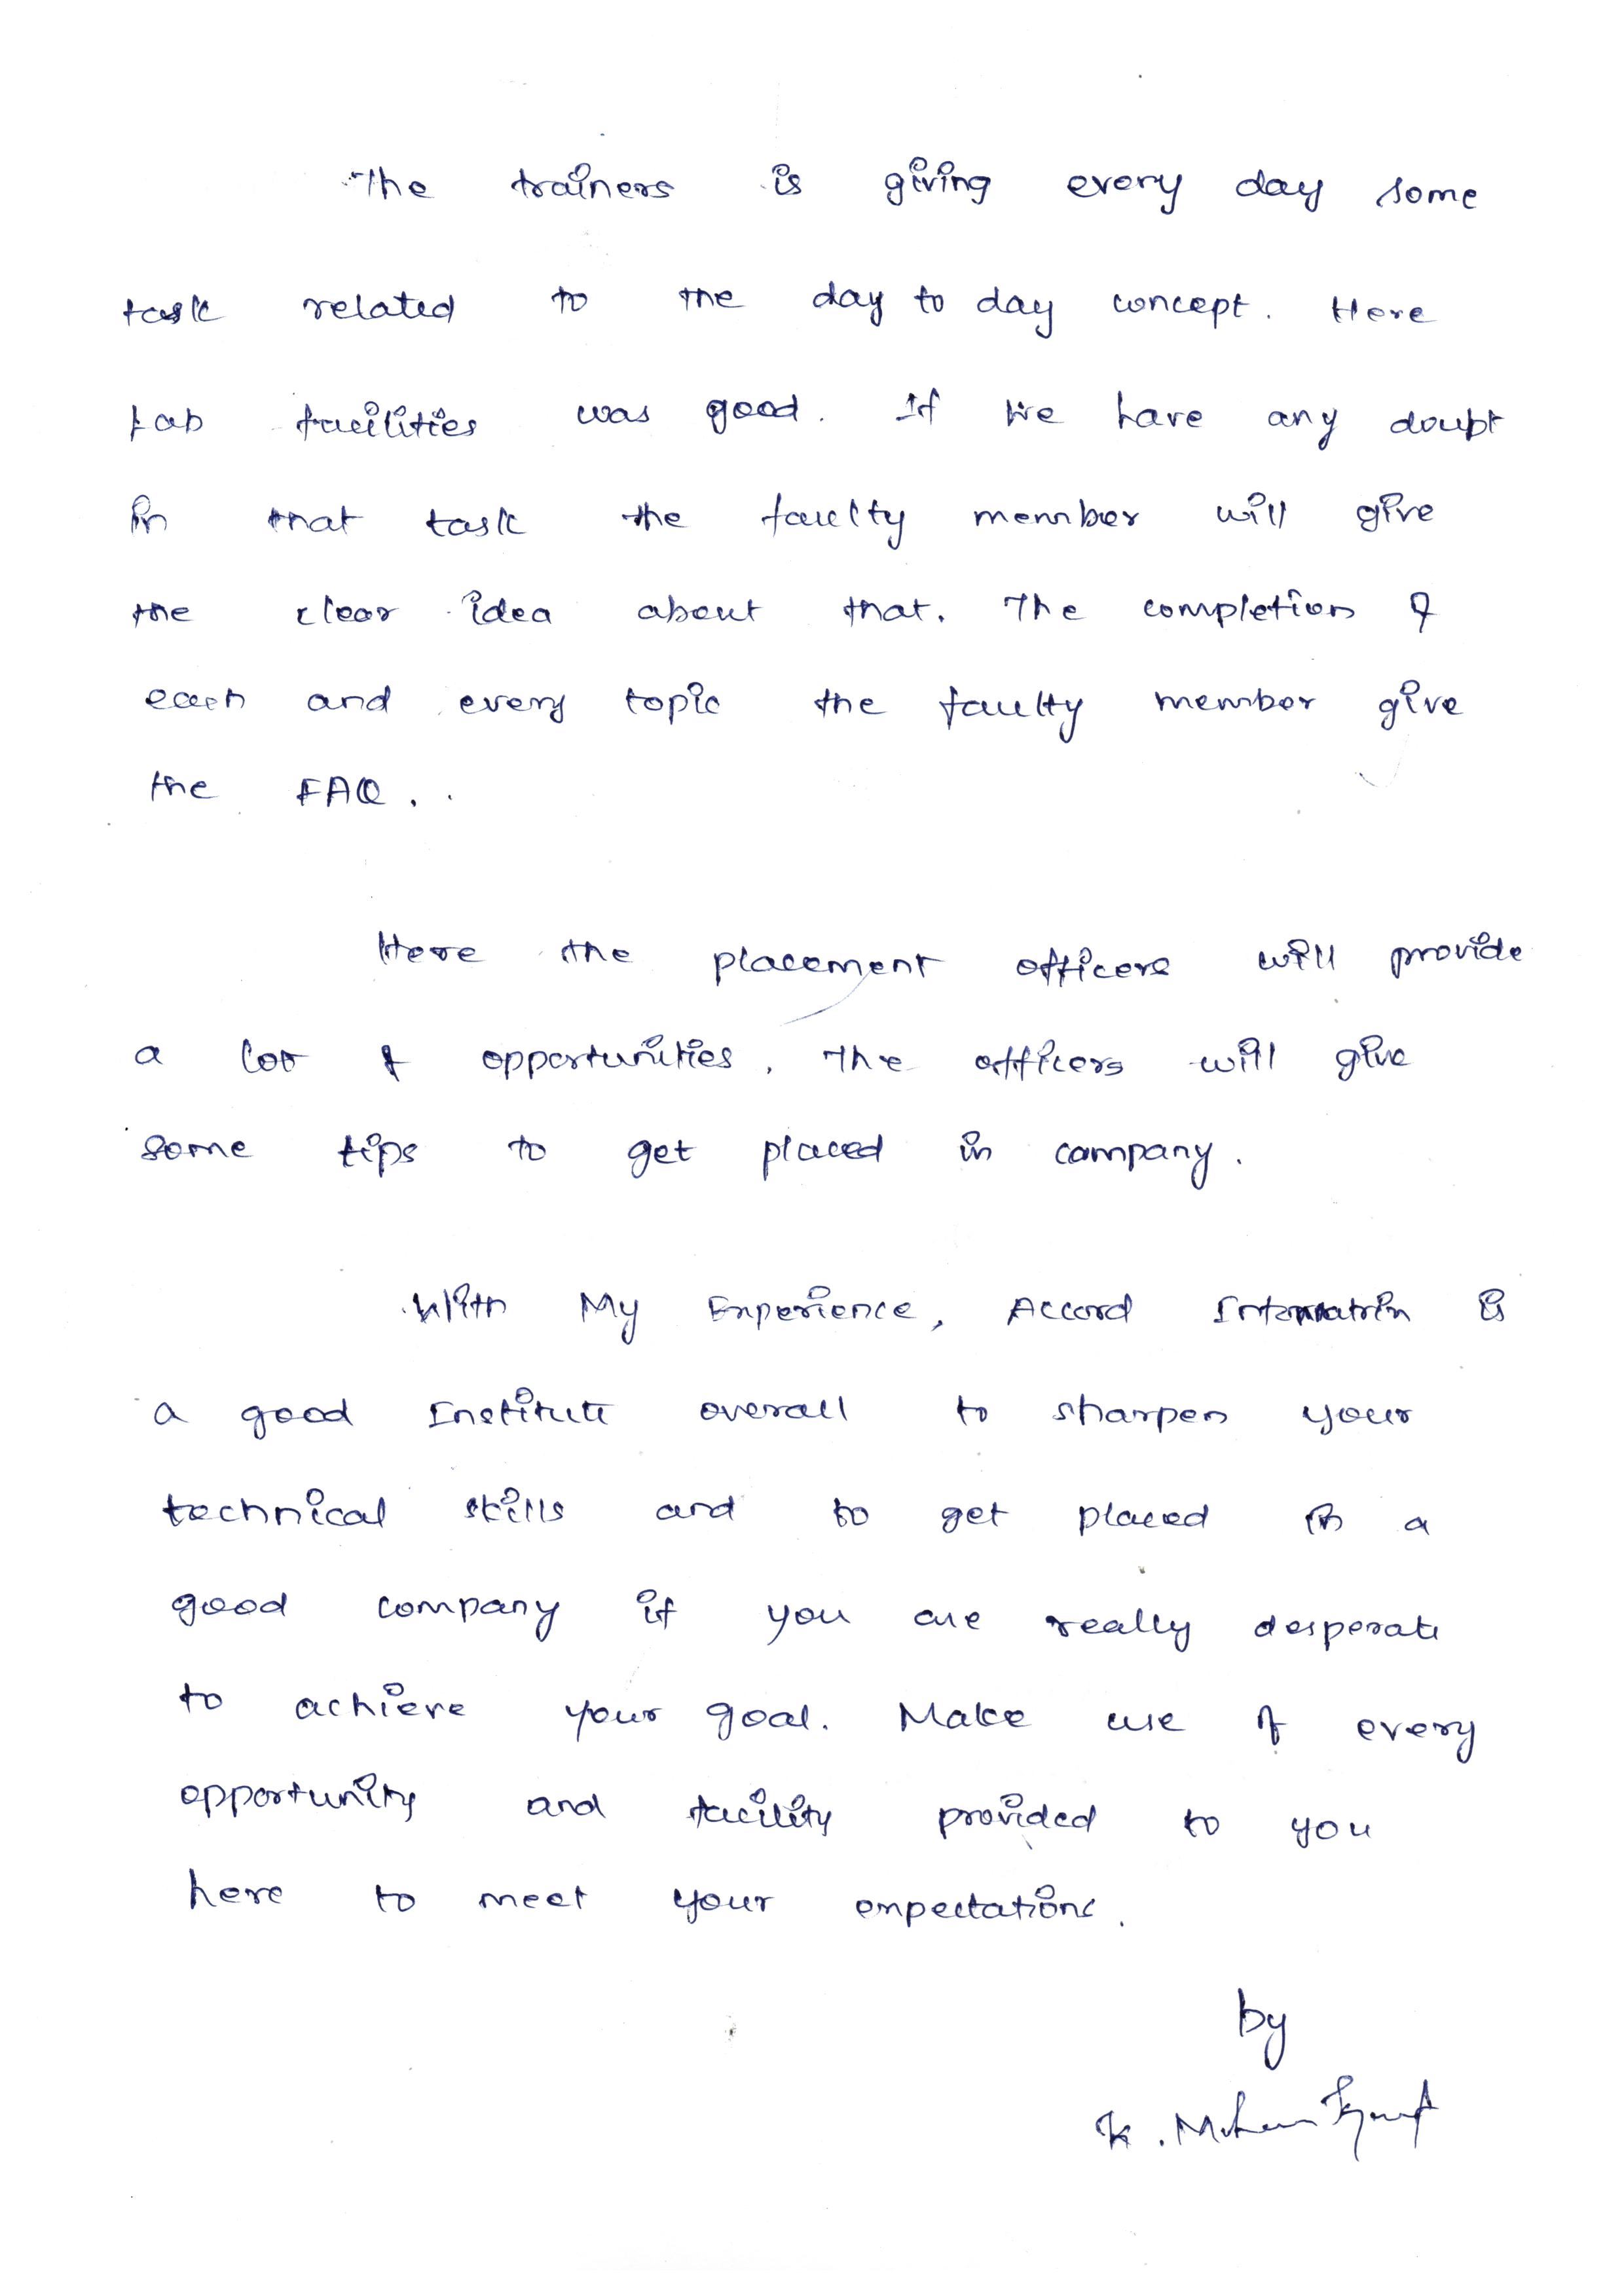 The trainers is giving every day some
task related to the day to day concept. Here
Lab facilities was good. If we have any doubt
in that task the faculty member will give
the clear idea about that. The completion of
each and every topic the faculty member give
the FAQ..
Here the placement officers will provide
a lot of opportunities. The officers will give
some tips to get placed in company.
With My Experience, Accord is
a good Institute overall to sharpen your
technical skills and to get placed in a
good company if you are really desperate
to achieve your goal. Make use of every
opportunity and facility provided to you
here to meet your expectations.
by
K. Mohan